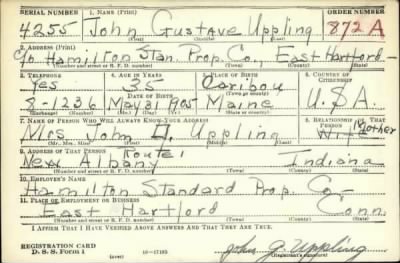 SERIAL NUMBER 1. NAME (Print) ORDER NUMBER
4255 John Gustave Uppling 872A
(First) (Middle) (Last)
2. ADDRESS (Print)
c/o Hamilton Stan. Prop. Co., East Hartford-
(Number and street or R. F. D. number) (Town) (County) (State)
3. TELEPHONE 4. AGE IN YEARS 5. PLACE OF BIRTH 6. COUNTRY OF CITIZENSHIP
Yes 35 Caribou
DATE OF BIRTH (Town or county)
8-1236 May 31 1905 Maine U.S.A.
(Exchange) (Number) (Mo.) (Day) (Yr.) (State or country)
7. NAME OF PERSON WHO WILL ALWAYS KNOW YOUR ADDRESS 8. RELATIONSHIP OF THAT PERSON
Mrs. John A. Uppling Wife Mother
(Mr., Mrs., Miss) (First) (Middle) (Last)
9. ADDRESS OF THAT PERSON
Route 1
New Albany Indiana
(Number and street or R. F. D. number) (Town) (County) (State)
10. EMPLOYER'S NAME
Hamilton Standard Prop. Co.
11. PLACE OF EMPLOYMENT OR BUSINESS
East Hartford Conn.
(Number and street or R. F. D. number) (Town) (County) (State)
I AFFIRM THAT I HAVE VERIFIED ABOVE ANSWERS AND THAT THEY ARE TRUE.
REGISTRATION CARD
D. S. S. Form 1 (over) 16-17105 John G. Uppling
(Registrant's signature)